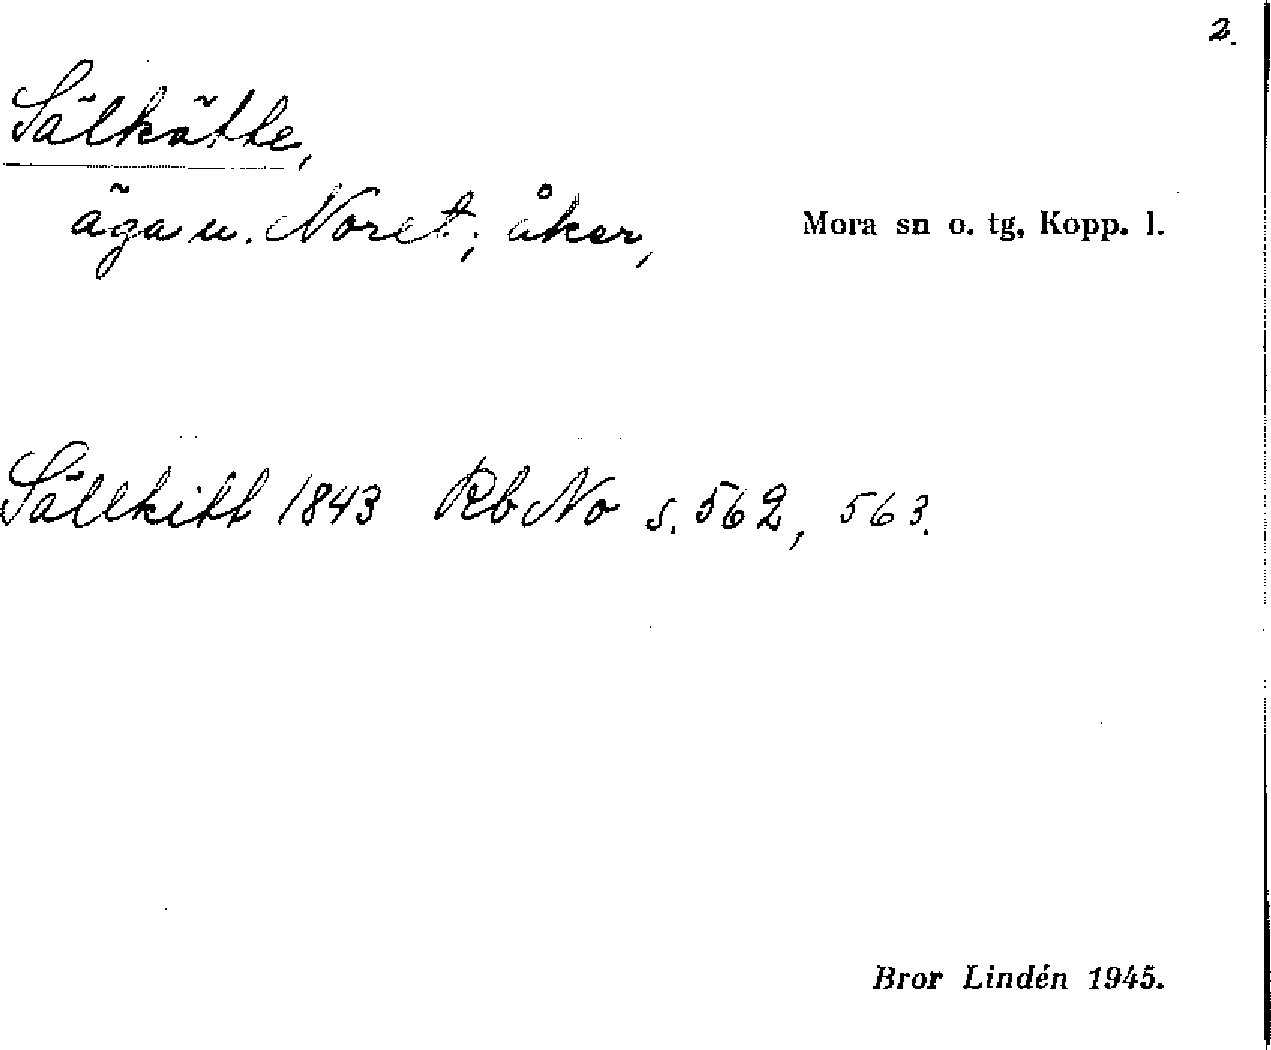 2.
Sälkätte,
äga u. Noret; åker, Mora sn o. tg, Kopp. l.
Sällkitt 1843 Rb No s. 562, 563.
Bror Lindén 1945.